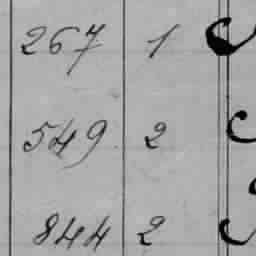 267 1
549 2
844 2